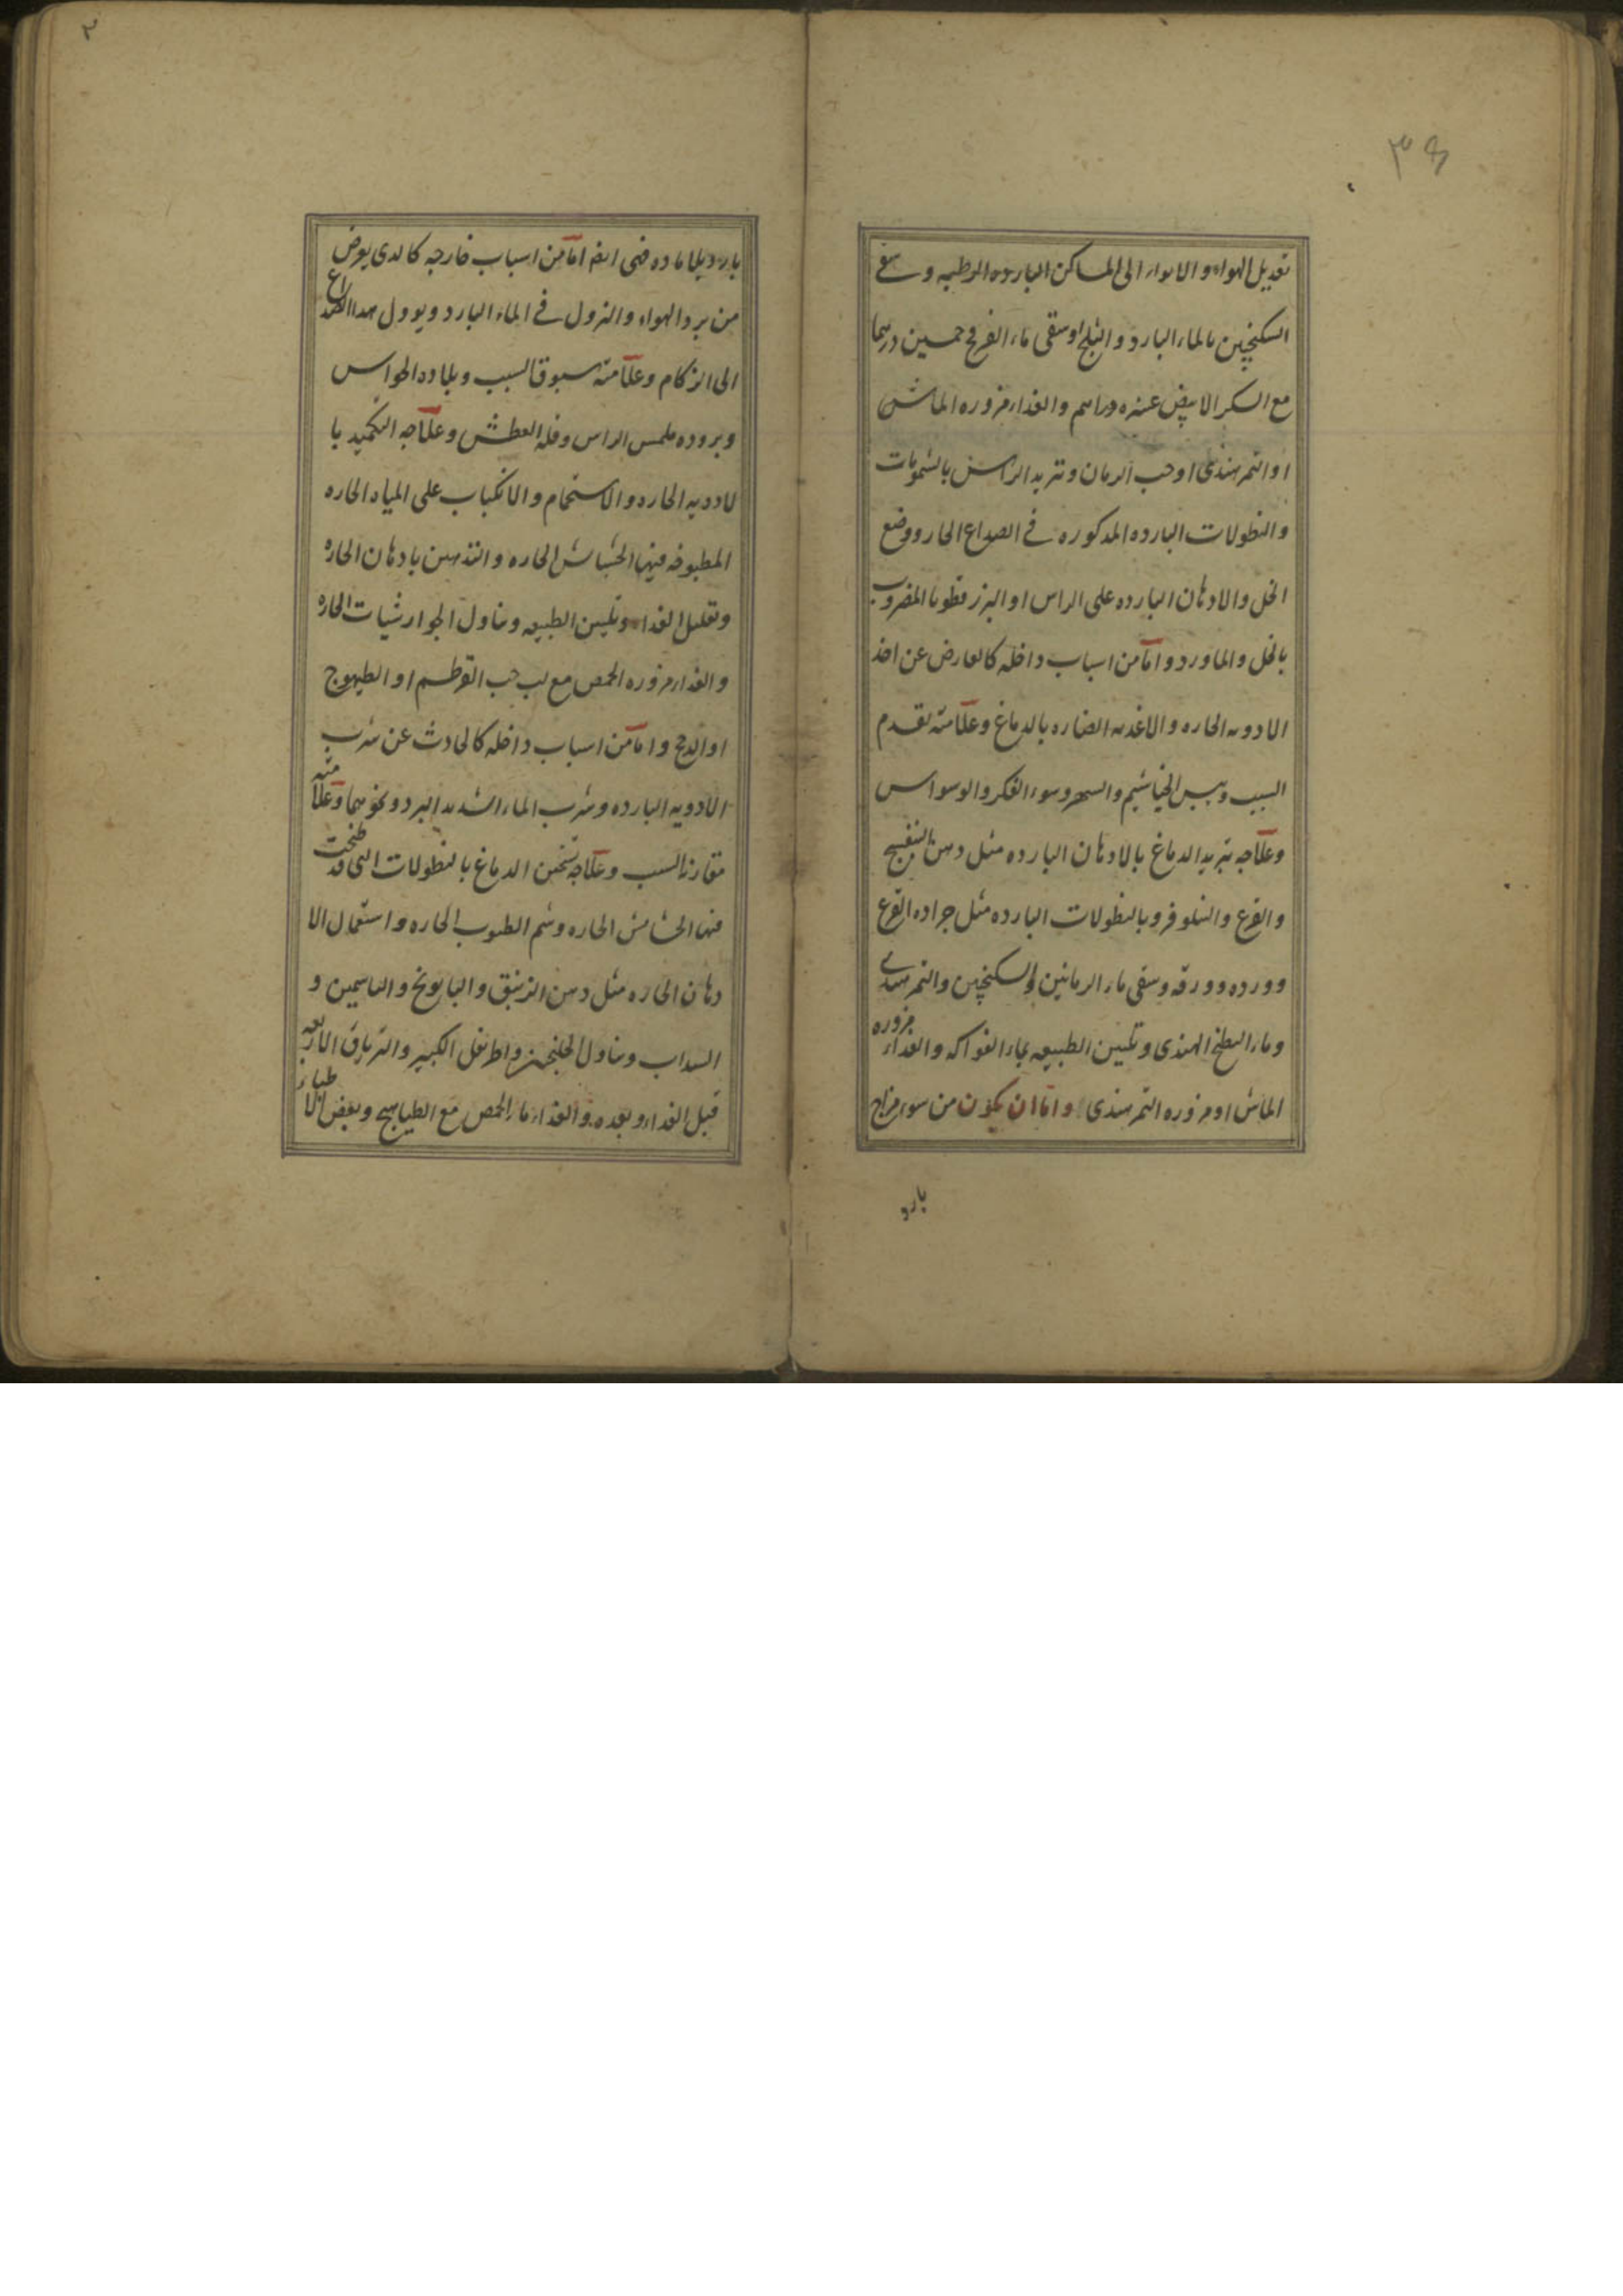 ٣٤
تعديل الهواء والايواء الى المساكن البارده الرطبه وسقى
السكنجبين بالماء البارد والثلج او سقى ماء القرع خمسين درهما
مع السكر الابيض عشره دراهم والغذاء مزوره الماش
او التمر هندى او حب الرمان وتبريد الراس بالشمومات
والنطولات البارده المذكوره فى الصداع الحار ووضع
الخل والادهان البارده على الراس او البزر قطونا المضروب
بالخل والماورد واما من اسباب داخله كالعارض عن اخذ
الادويه الحاره والاغذيه الضاره بالدماغ وعلامته تقدم
السبب ويبس الخياشيم والسهر وسوء الفكر والوسواس
وعلاجه تبريد الدماغ بالادهان البارده مثل دهن البنفسج
والقرع والنيلوفر وبالنطولات البارده مثل جراده القرع
وورده وورقه وسقى ماء الرمانين والسكنجبين والتمر هندى
وماء البطيخ الهندى وتليين الطبيعه بماء الفواكه والغذاء مزوره
الماش او مزوره التمر هندى واما ان يكون من سوء مزاج
بارد
٢
بارد بلا ماده فهى ايضا اما من اسباب خارجه كالذى يعرض
من برد الهواء والنزول فى الماء البارد ويوول هذا الصداع
الى الزكام وعلامته سبوق السبب وبلاده الحواس
وبروده ملمس الراس وقله العطش وعلاجه التكميد با
لادويه الحاره والاستحمام والانكباب على المياه الحاره
المطبوخه فيها الحشائش الحاره والتدهين بادهان الحاره
وتقليل الغذاء وتليين الطبيعه وتناول الجوارشيات الحاره
والغذاء مزوره الحمص مع لب حب القرطم او الطيهوج
او الدج واما من اسباب داخله كالحادث عن شرب
الادويه البارده وشرب الماء الشديد البرد ونحوهما وعلامته
مقارنة السبب وعلاجه تسخين الدماغ بالنطولات التى قد طبخت
فيها الحشائش الحاره وشم الطيوب الحاره واستعمال الا
دهان الحاره مثل دهن الزنبق والبابونج والياسمين و
السداب وتناول الجلنجبين واطريفل الكبير والترياق الاربعه
قبل الغذاء وبعده والغذاء ماء الحمص مع الطياهيج وبعض